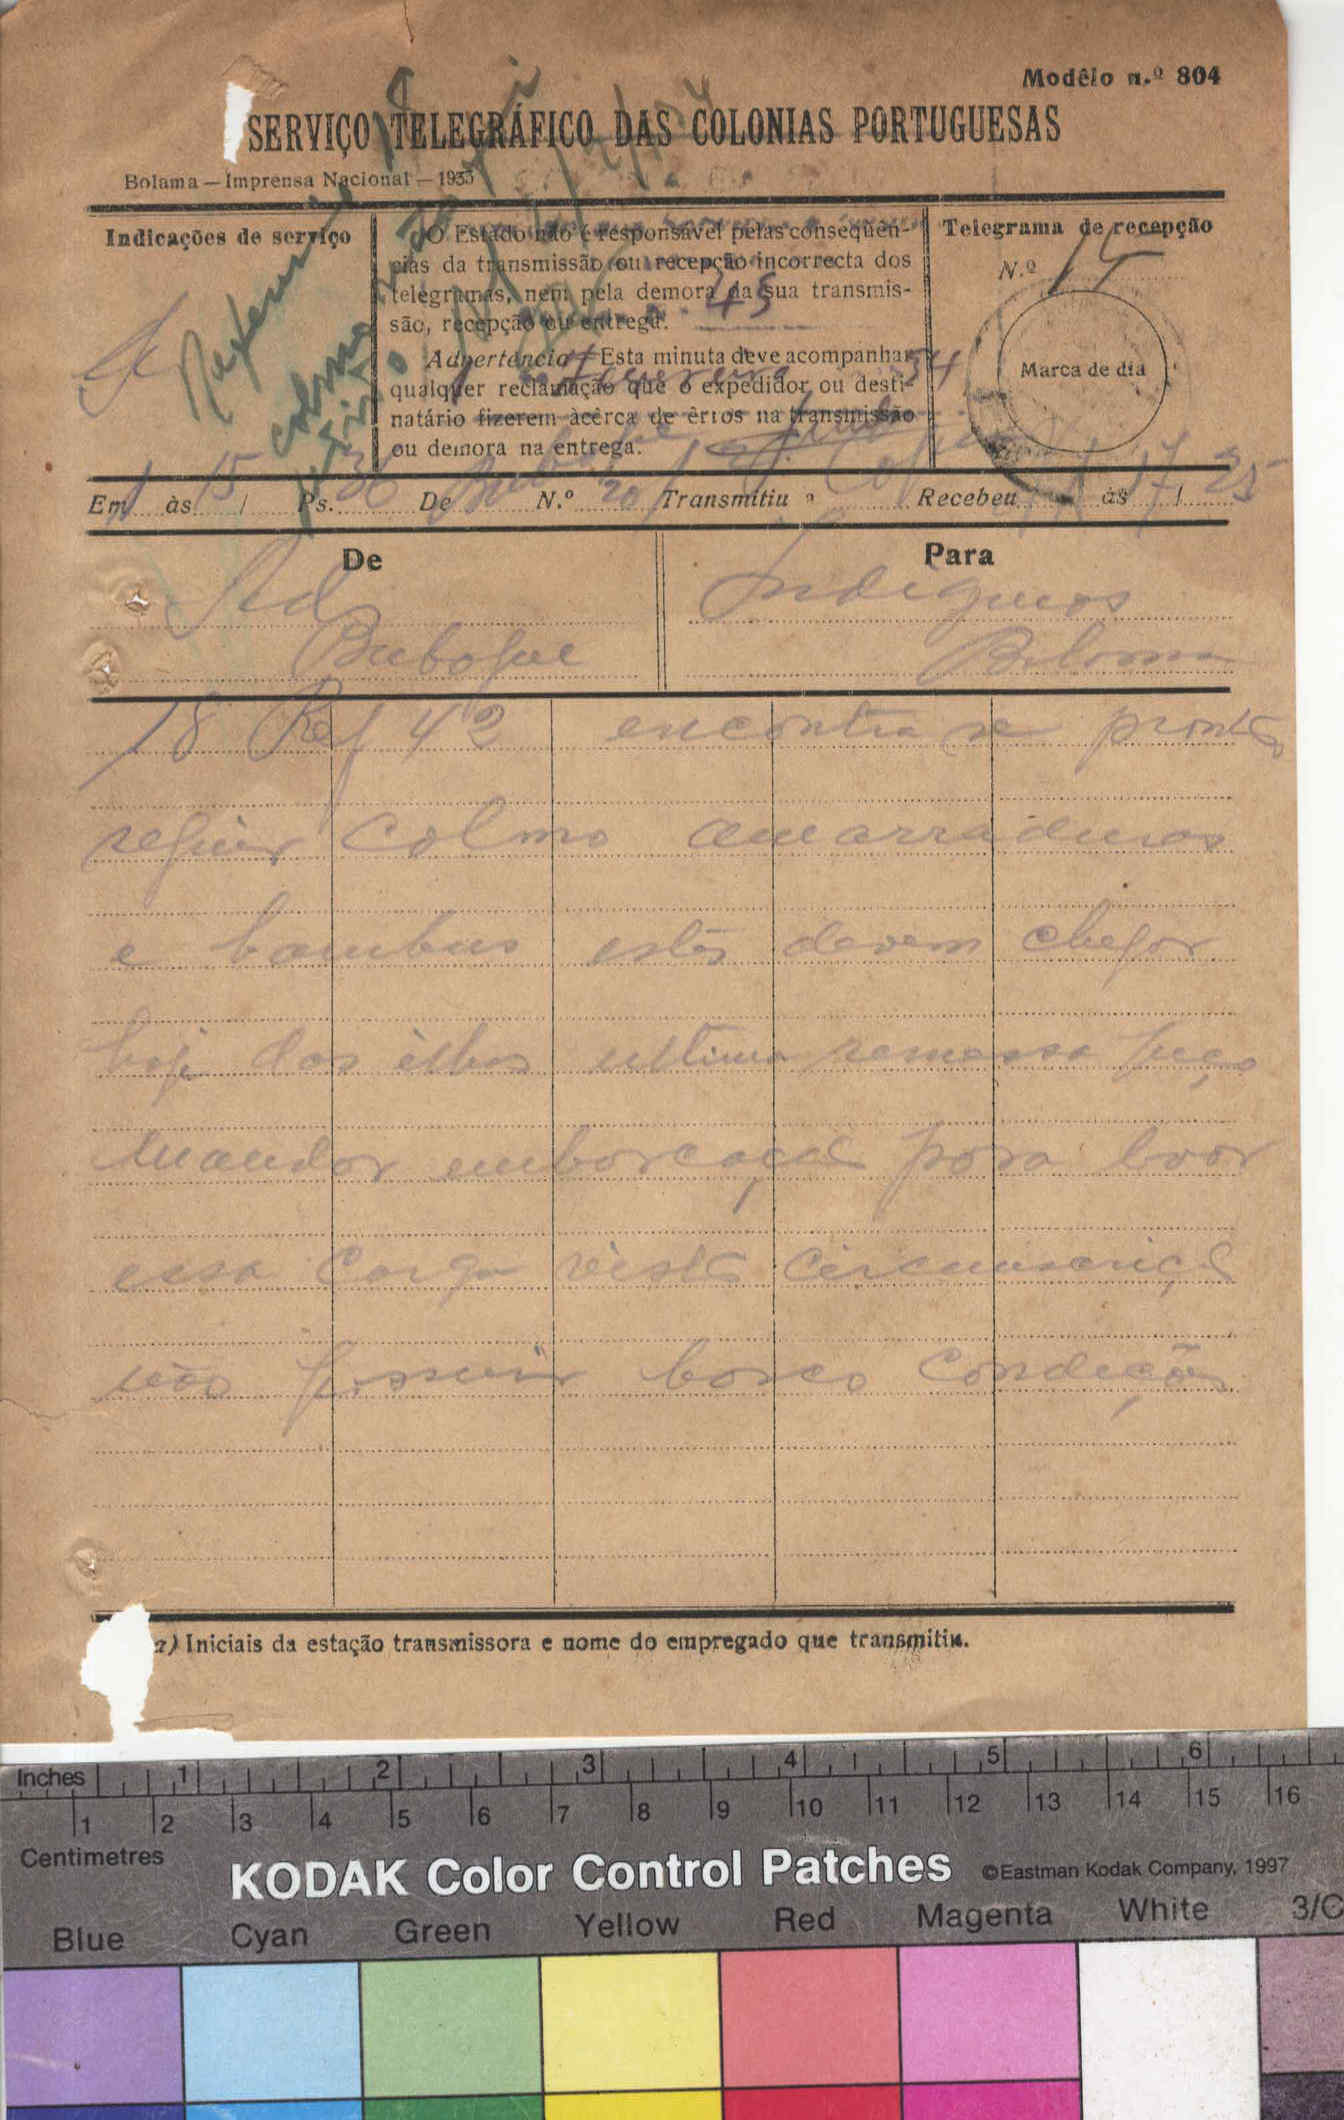 Modêlo n.º 804
SERVIÇO TELEGRÁFICO DAS COLONIAS PORTUGUESAS
Bolama — Imprensa Nacional — 1933
Indicações de serviço
O Estado não é responsável pelas conseqüên-
cias da transmissão ou recepção incorrecta dos
telegramas, nem pela demora da sua transmis-
são, recepção ou entrega.
Advertência — Esta minuta deve acompanhar
qualquer reclamação que o expedidor ou desti-
natário fizerem àcêrca de êrros na transmissão
ou demora na entrega.
45
34
Telegrama de recepção
N.º 15
Marca de dia
Em 1 às 15 / Ps. 36 De Bubaque N.º 20 Transmitiu a Recebeu às 17 / 25
De
Para
Adr
Indigenos
Bubaque
Bolama
18 Ref 42 encontra se pronto
seguir colmo amarraduras
e bambus estes devem chegar
hoje das ilhas ultima remessa peço
mandar embarcação para levar
essa carga visto circunscrição
não possuir barco condições
a) Iniciais da estação transmissora e nome do empregado que transmitiu.
Inches 1 2 3 4 5 6
1 2 3 4 5 6 7 8 9 10 11 12 13 14 15 16
Centimetres
KODAK Color Control Patches ©Eastman Kodak Company, 1997
Blue Cyan Green Yellow Red Magenta White 3/C